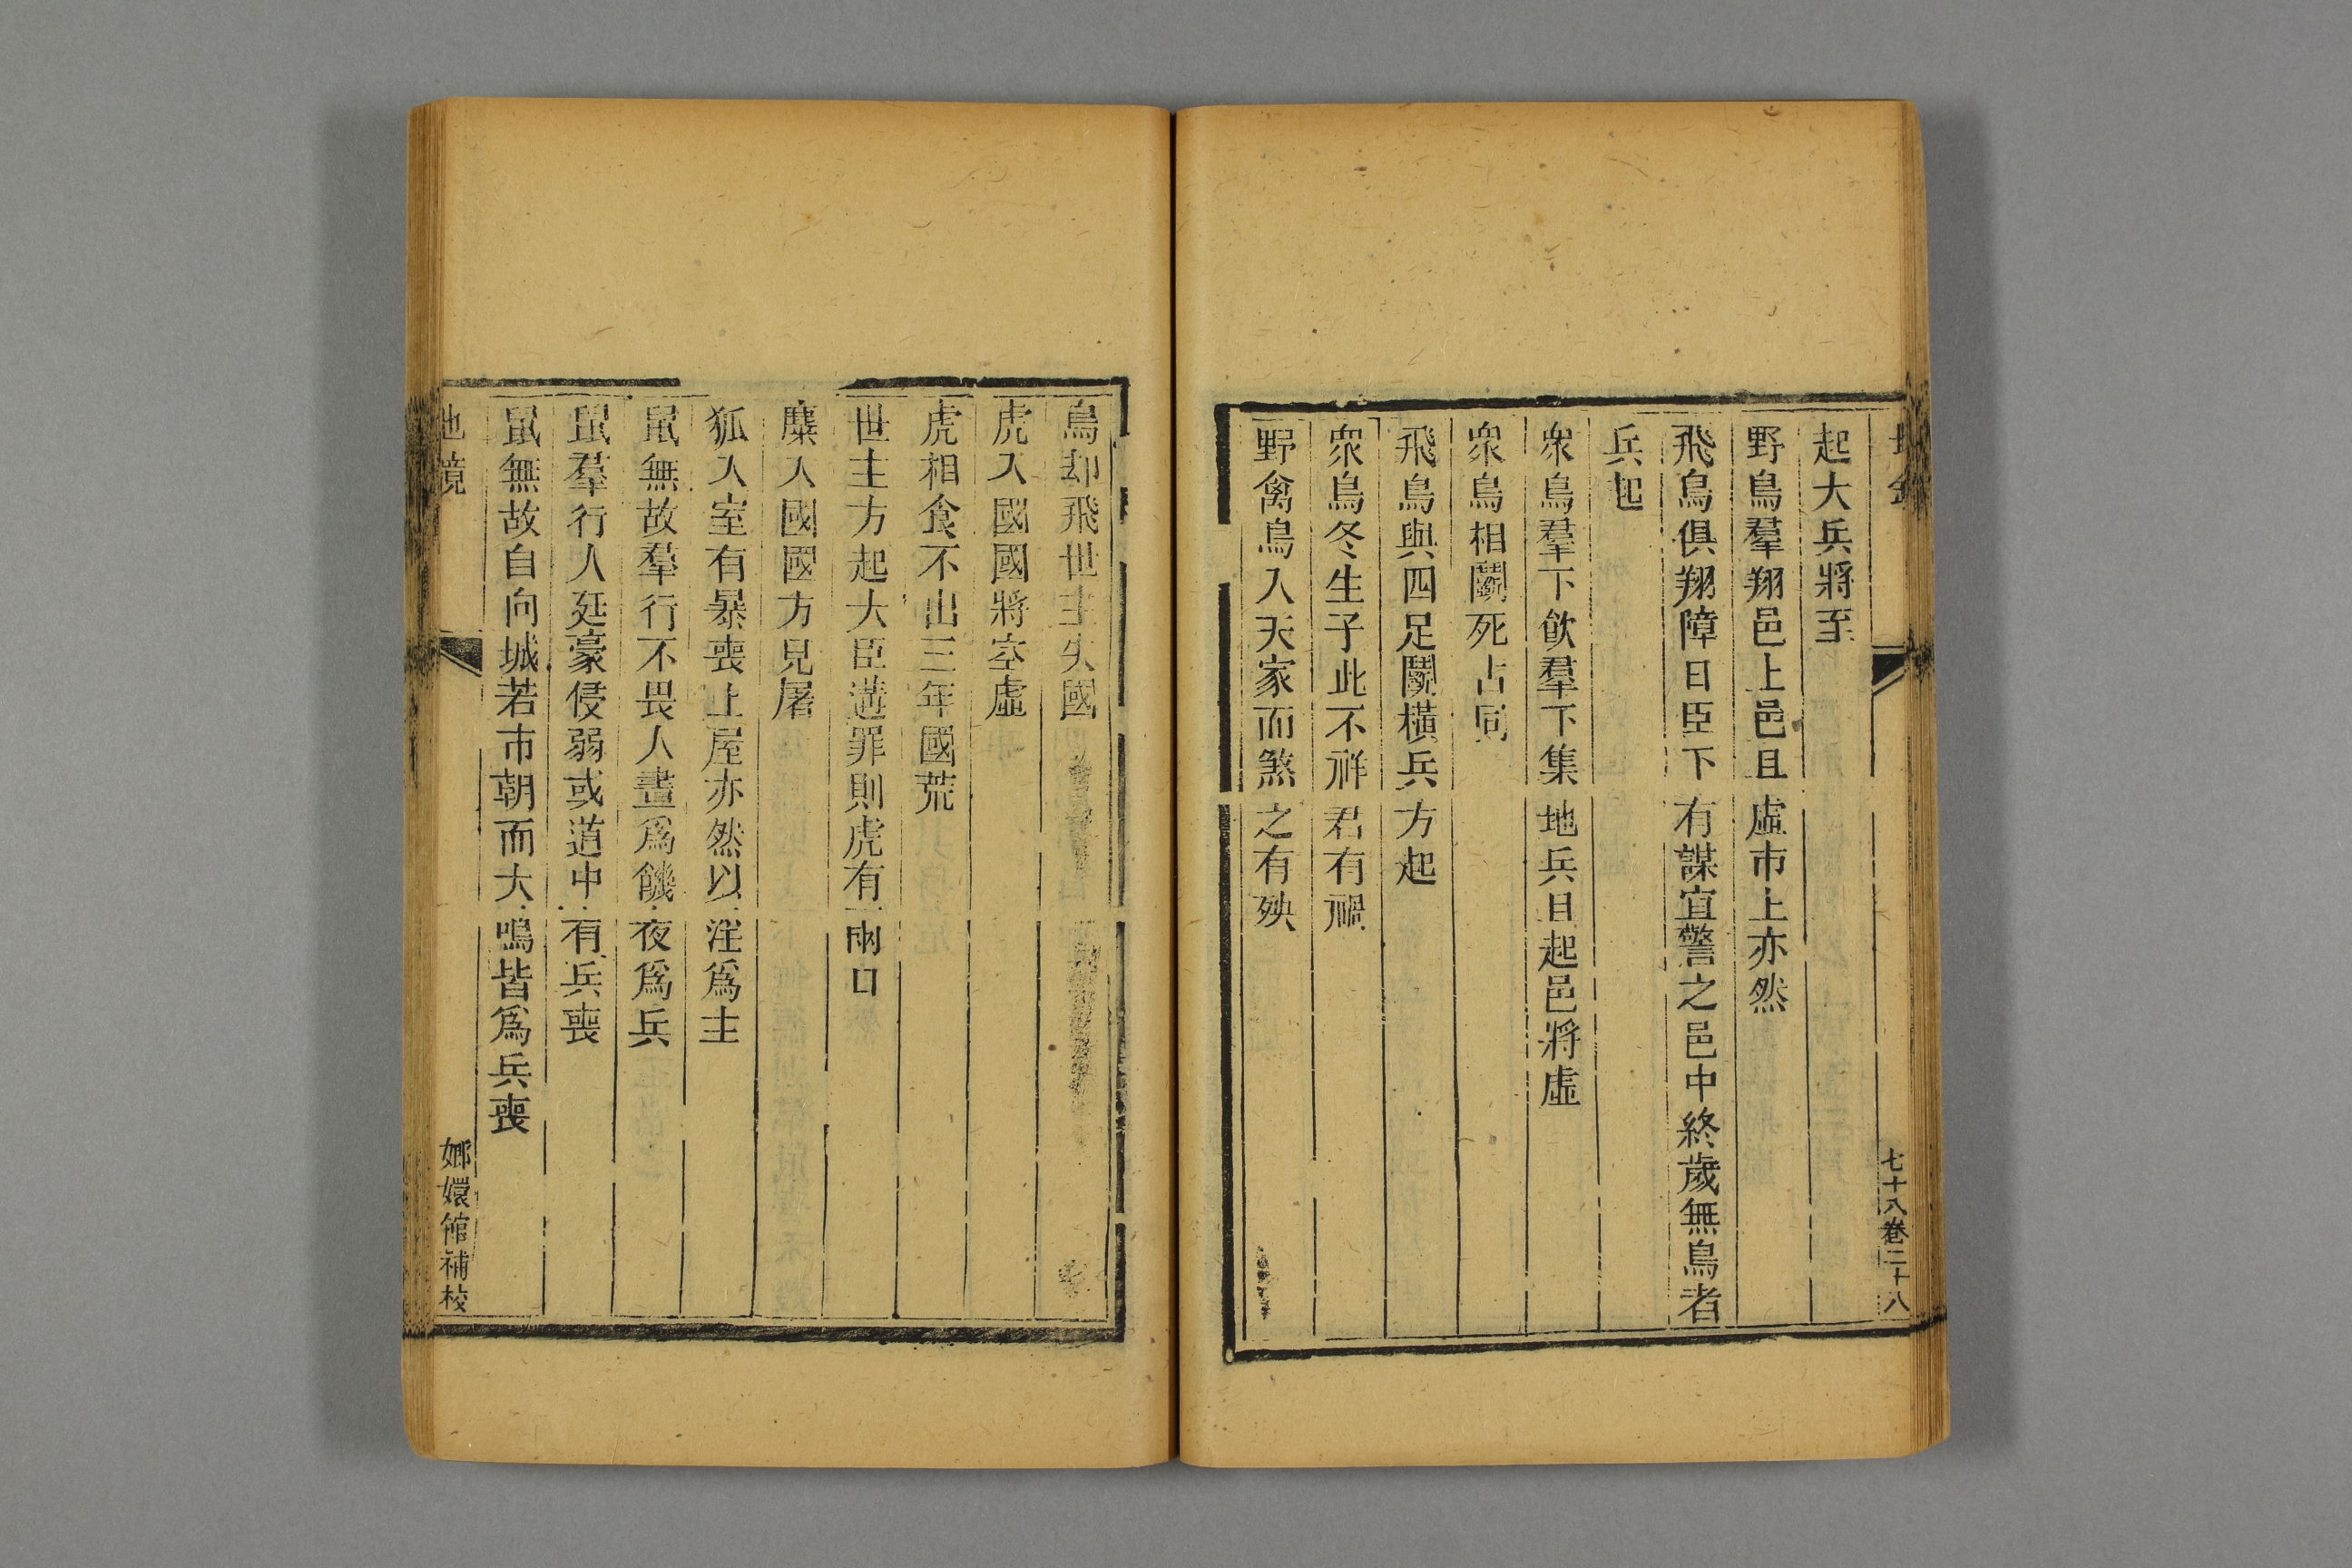 七十八卷二十八
起大兵將至
野鳥羣翔邑上邑且虛市上亦然
飛鳥俱翔障日臣下有謀宜警之邑中終歲無鳥者
兵起
衆鳥羣下飮羣下集地兵且起邑將虛
衆鳥相鬭死占同
飛鳥與四足鬭橫兵方起
衆鳥冬生子此不祥君有禍
野禽鳥入天家而煞之有殃
鳥却飛世主失國
虎入國國將空虛
虎相食不出三年國荒
世主方起大臣遘罪則虎有兩口
麋入國國方見屠
狐入室有暴喪上屋亦然以注爲主
鼠無故羣行不畏人晝爲饑夜爲兵
鼠羣行人延豪侵弱或道中有兵喪
鼠無故自向城若市朝而大鳴皆爲兵喪
地鏡
嫏嬛館補校